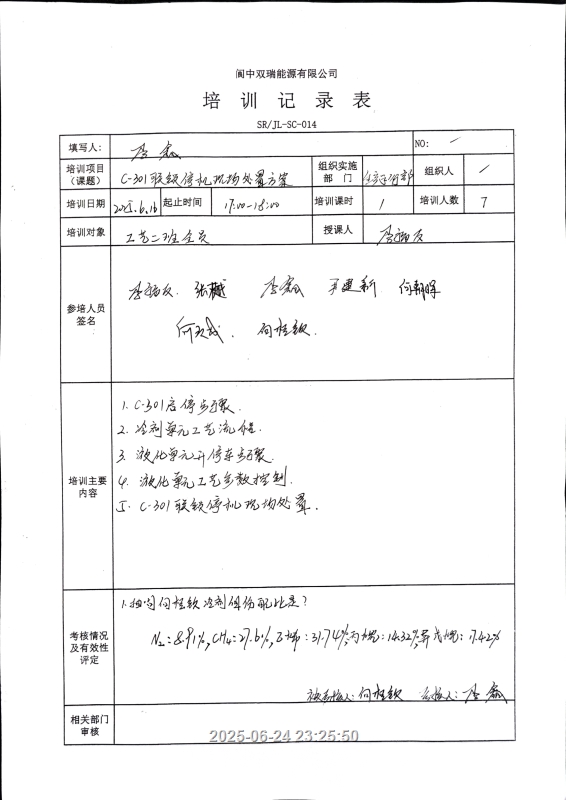 阆中双瑞能源有限公司
培 训 记 录 表
SR/JL-SC-014
填写人: 李鑫 NO: /
培训项目（课题） C-301联锁停机现场处置方案 组织实施部 门 生产运行部 组织人 /
培训日期 2025.6.16 起止时间 17:00-18:00 培训课时 1 培训人数 7
培训对象 工艺二班全员 授课人
参培人员签名 张樾 李鑫 王建新 何朝晖
何桂钦
培训主要内容
1. C-301启停步骤.
2. 冷剂单元工艺流程.
3. 液化单元开停车步骤.
4. 液化单元工艺参数控制.
5. C-301联锁停机现场处置.
考核情况及有效性评定
1.抽问何桂钦冷剂组份配比是?
N₂:8.91%,CH₄:27.6%,乙烯:31.74%,丙烷:14.32%,异戊烷:17.42%
被考核人:何桂钦 考核人:李鑫
相关部门审核
2025-06-24 23:25:50